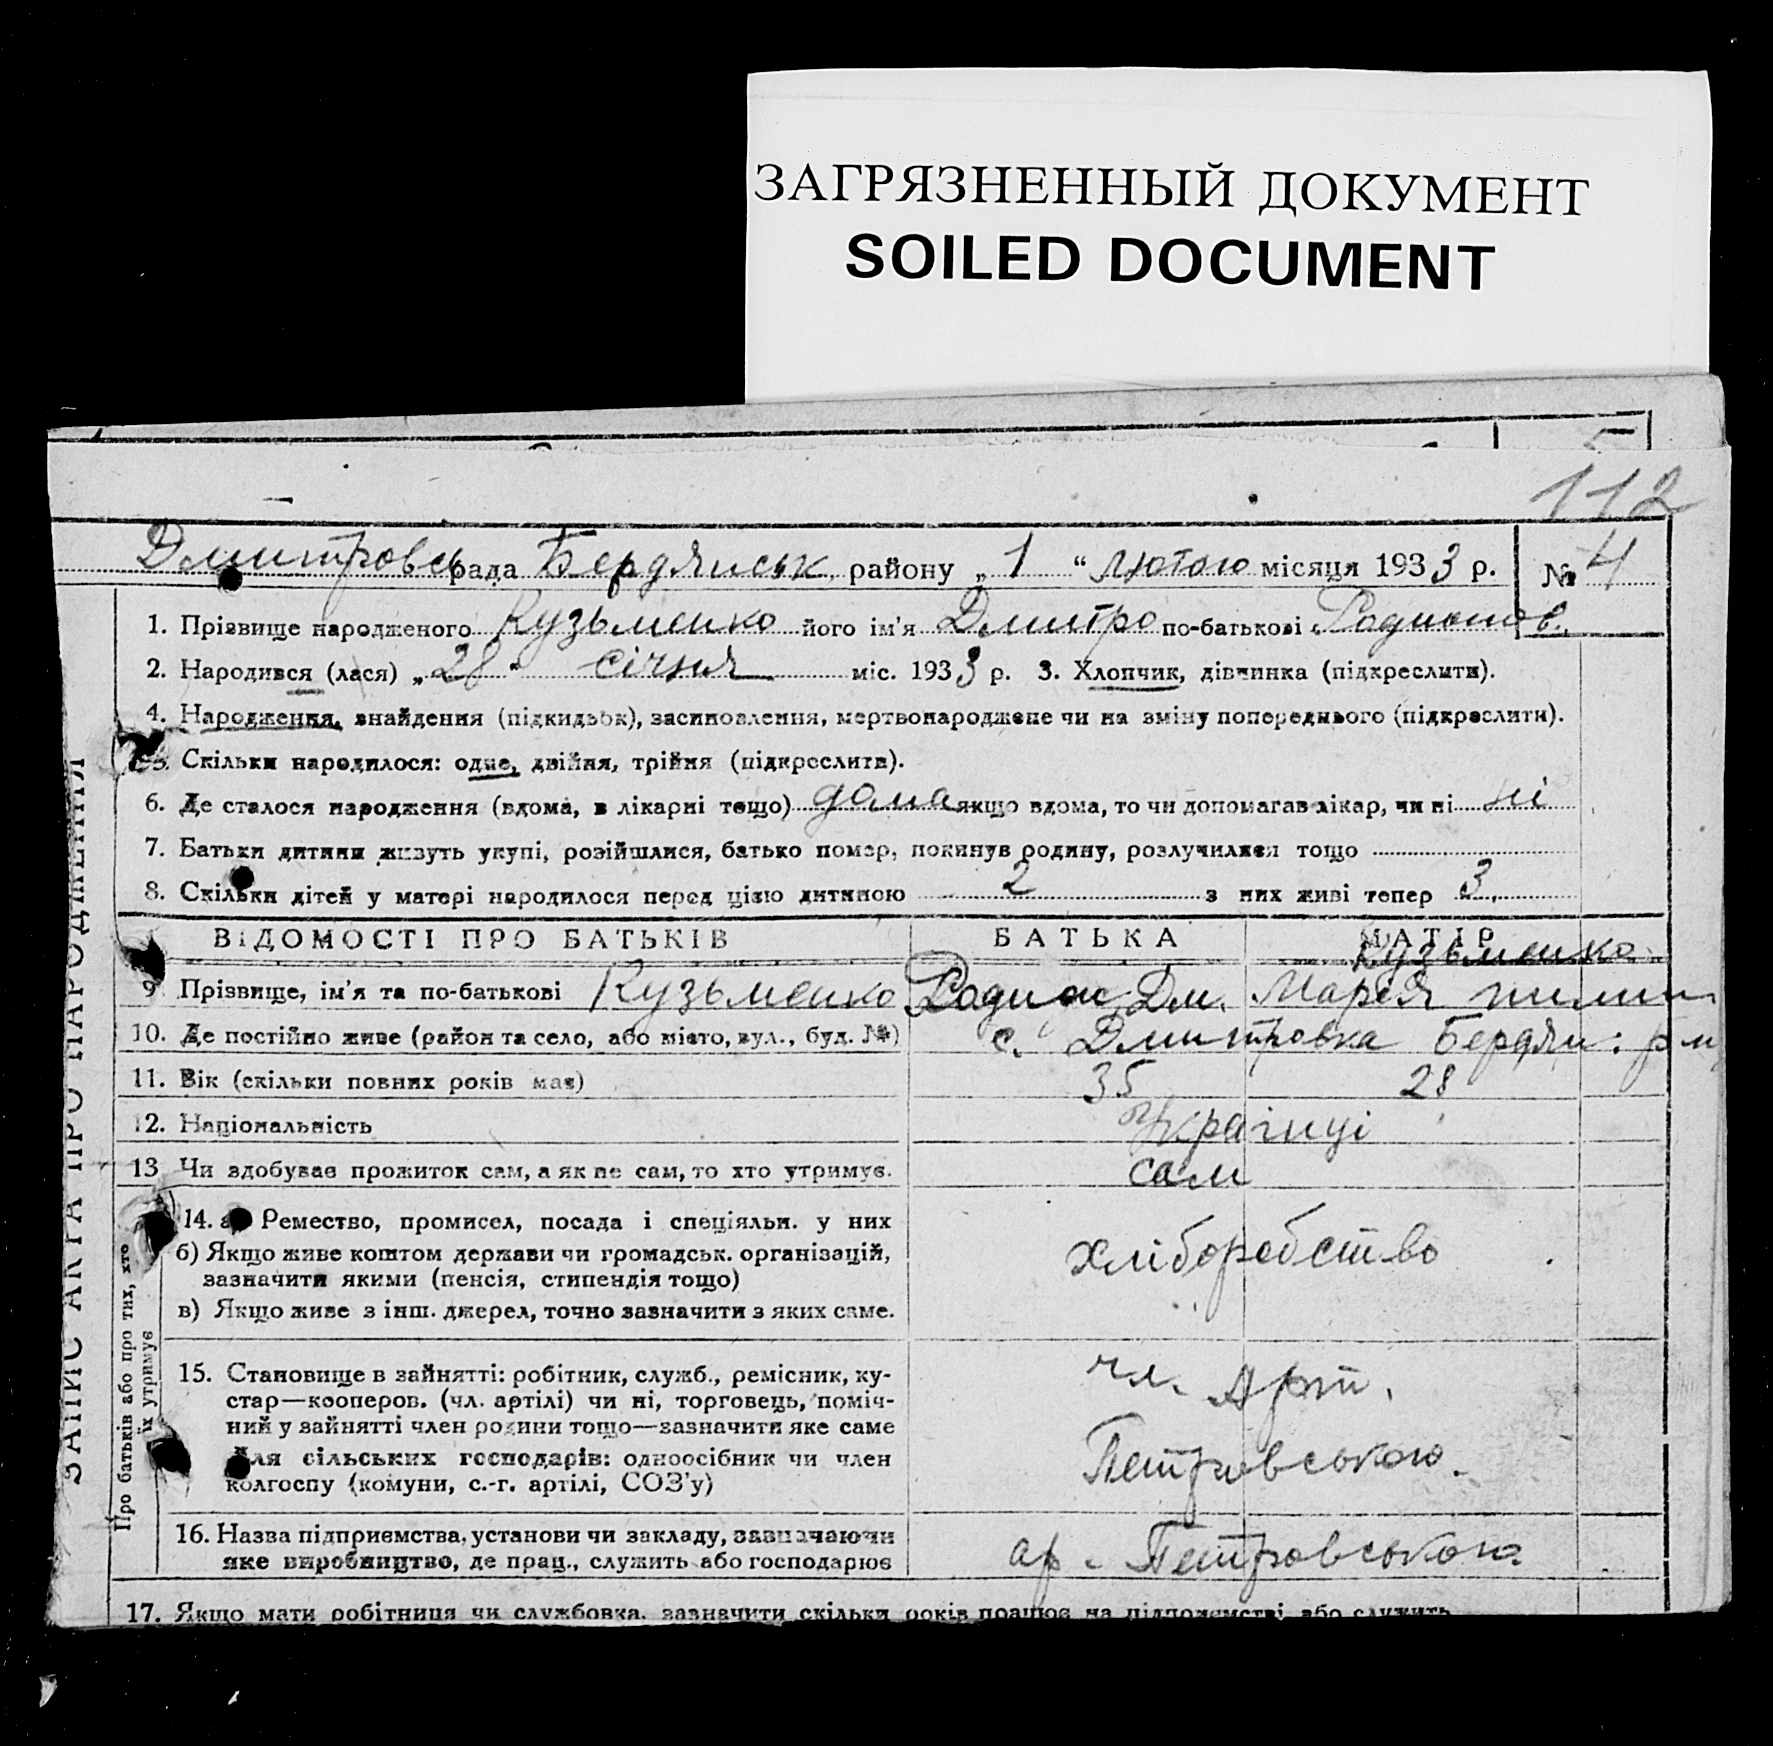 ЗАГРЯЗНЕННЫЙ ДОКУМЕНТ
SOILED DOCUMENT
112
Дмитровсь рада Бердянськ району „ 1 “ лютого місяця 1933 р. № 4
1. Прізвище народженого Кузьменко його ім'я Дмитро по-батькові Радионов.
2. Народився (лася) „ 28 “ січня міс. 1933 р. 3. Хлопчик, дівчинка (підкреслити).
4. Народження, знайдення (підкидьок), засиновлення, мертвонароджене чи на зміну попереднього (підкреслити).
5. Скільки народилося: одне, двійня, трійня (підкреслити).
6. Де сталося народження (вдома, в лікарні тощо) дома якщо вдома, то чи допомагав лікар, чи ні ні
7. Батьки дитини живуть укупі, розійшлися, батько помер, покинув родину, розлучилися тощо
8. Скільки дітей у матері народилося перед цією дитиною 2 з них живі тепер 3
ВІДОМОСТІ ПРО БАТЬКІВ БАТЬКА МАТІР
Кузьменко
9. Прізвище, ім'я та по-батькові Кузьменко Радион Дм. Марія
10. Де постійно живе (район та село, або місто, вул., буд. №) с. Дмитровка Бердян.
11. Вік (скільки повних років має) 35 28
12. Національність Українці
13 Чи здобуває прожиток сам, а як не сам, то хто утримує. сам
14. а) Ремество, промисел, посада і спеціяльн. у них
б) Якщо живе коштом держави чи громадськ. організацій,
зазначити якими (пенсія, стипендія тощо)
хліборобство
в) Якщо живе з інш. джерел, точно зазначити з яких саме.
15. Становище в зайнятті: робітник, служб., ремісник, ку-
стар—кооперов. (чл. артілі) чи ні, торговець, поміч-
ний у зайнятті член родини тощо—зазначити яке саме
Для сільських господарів: одноосібник чи член
колгоспу (комуни, с.-г. артілі, СОЗ'у)
чл. Арт.
Петровського.
16. Назва підприємства, установи чи закладу, зазначаючи
яке виробництво, де прац., служить або господарює
ар. Петровського
17. Якщо мати робітниця чи службовка, зазначити скільки років працює на підприємстві або служить
ЗАПИС АКТА ПРО НАРОДЖЕННЯ
Про батьків або про тих, хто
їх утримує